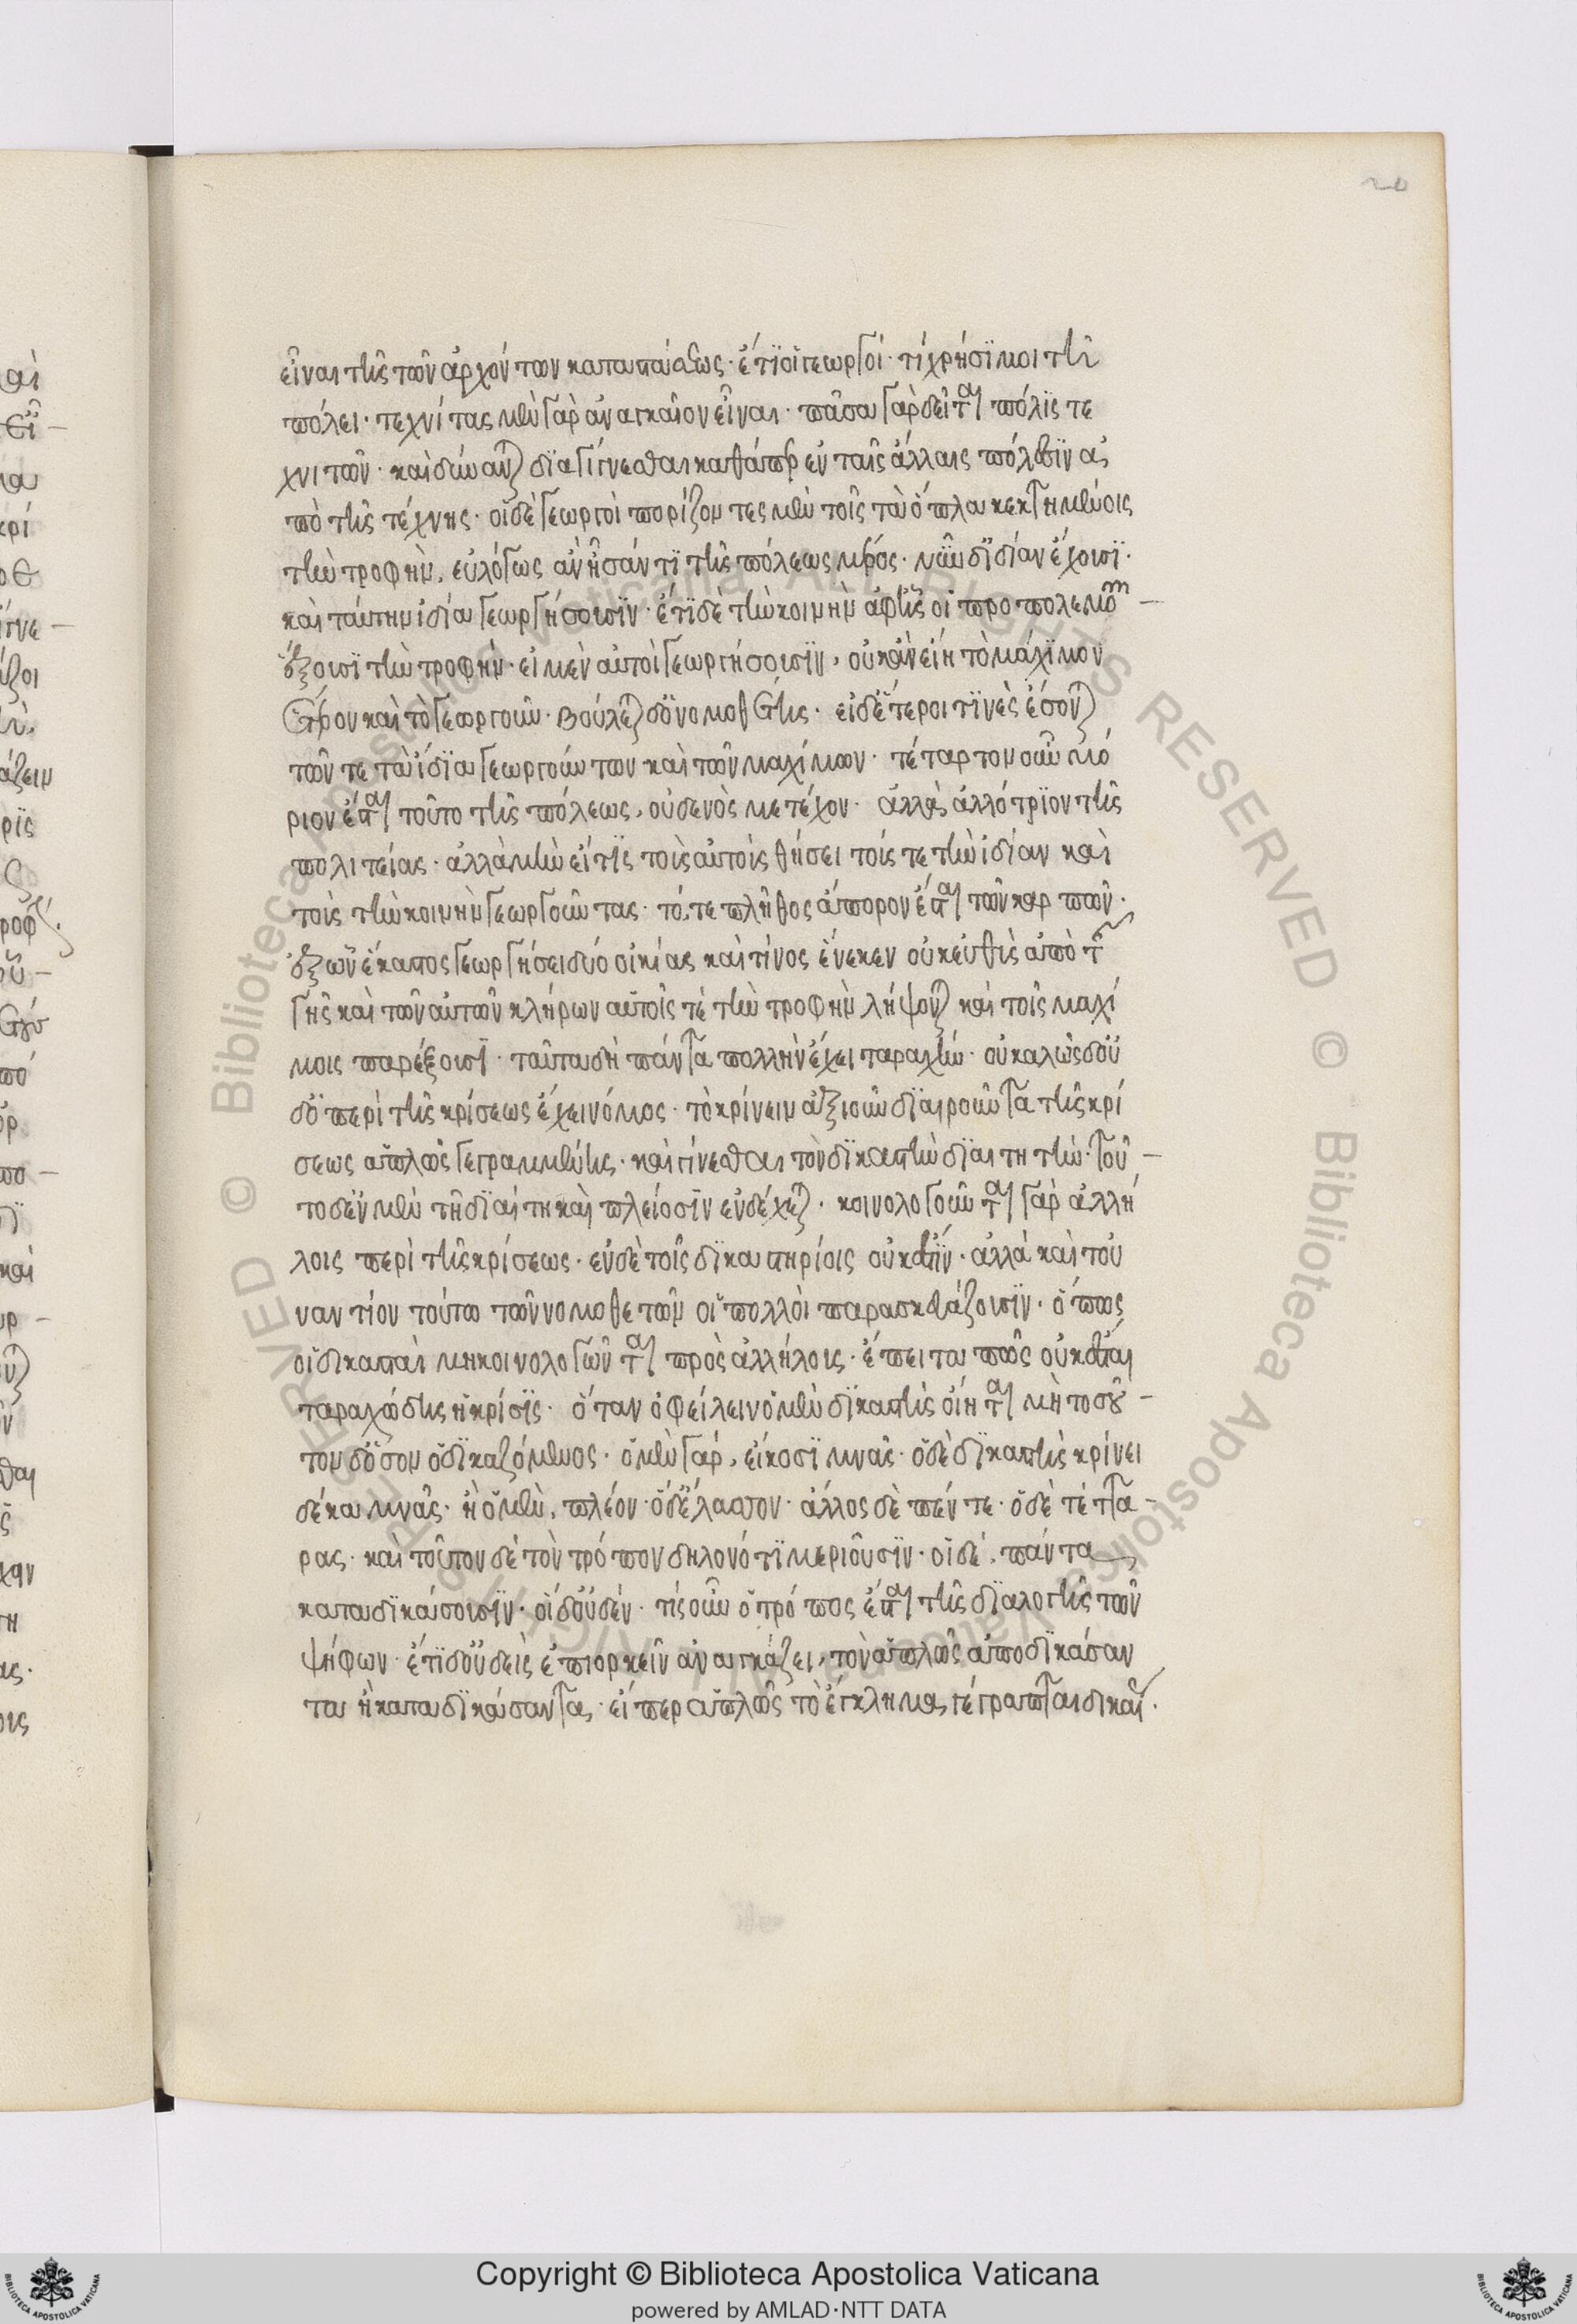 εἶναι τῆς τῶν ἀρχόντων καταστάσεως· ἔτι οἱ γεωργοί· τί χρήσιμοι τῆ
πόλει· τεχνίτας μὲν γὰρ ἀναγκαῖον εἶναι· πᾶσα γὰρ δεῖται πόλις τε
χνιτῶν· καὶ δύνανται διαγίγνεσθαι καθάπερ ἐν ταῖς ἄλλαις πόλεσιν ἀ
πὸ τῆς τέχνης· οἱ δὲ γεωργοὶ πορίζοντες μὲν τοῖς τὰ ὅπλα κεκτημένοις
τὴν τροφὴν, εὐλόγως ἂν ἦσάν τι τῆς πόλεως μέρος· νῦν δ' ἰδίαν ἔχουσι·
καὶ ταύτην ἰδία γεωργήσουσιν· ἔτι δὲ τὴν κοινὴν ἀφ' ἧς οἱ προπολεμοῦντες
ἕξουσι τὴν τροφήν· εἰ μὲν αὐτοὶ γεωργήσουσιν, οὐκ ἂν εἴη τὸ μάχιμον
ἕτερον καὶ τὸ γεωργοῦν· βούλεται δ' ὁ νομοθέτης· εἰ δ' ἕτεροι τινὲς ἔσονται
τῶν τε τὰ ἴδια γεωργούντων καὶ τῶν μαχίμων· τέταρτον οὖν μό
ριον ἔσται τοῦτο τῆς πόλεως, οὐδενὸς μετέχον· ἀλλὰ ἀλλότριον τῆς
πολιτείας· ἀλλὰ μὴν εἴ τις τοὺς αὐτοὺς θήσει τούς τε τὴν ἰδίαν καὶ
τοὺς τὴν κοινὴν γεωργοῦντας· τό, τε πλῆθος ἄπορον ἔσται τῶν καρπῶν·
ἐξ ὧν ἕκαστος γεωργήσει δύο οἰκίας καὶ τίνος ἕνεκεν οὐκ εὐθὺς ἀπὸ τῆς
γῆς καὶ τῶν αὐτῶν κλήρων αὐτοῖς τὲ τὴν τροφὴν λήψονται καὶ τοῖς μαχί
μοις παρέξουσι· ταῦτα δὴ πάντα πολλὴν ἔχει ταραχήν· οὐ καλῶς δ' οὐ
δ' ὁ περὶ τῆς κρίσεως ἔχει νόμος· τὸ κρίνειν ἀξιοῦν διαιροῦντα τῆς κρί
σεως ἁπλῶς γεγραμμένης· καὶ γίνεσθαι τὸν δικαστὴν διαιτητήν· τοῦ
το δ' ἐν μὲν τῆ διαίτη καὶ πλείοσιν ἐνδέχεται· κοινολογοῦνται γὰρ ἀλλή
λοις περὶ τῆς κρίσεως· ἐν δὲ τοῖς δικαστηρίοις οὐκ ἔστιν· ἀλλὰ καὶ τοὐ
ναντίον τούτω τῶν νομοθετῶν οἱ πολλοὶ παρασκευάζουσιν· ὅπως
οἱ δικασταὶ μὴ κοινολογῶνται πρὸς ἀλλήλους· ἔπειτα πῶς οὐκ ἔσται
ταραχώδης ἡ κρίσις· ὅταν ὀφείλειν ὁ μὲν δικαστὴς οἴηται μὴ τοσοῦ
τον δ' ὅσον ὁ δικαζόμενος· ὁ μὲν γὰρ, εἴκοσι μνᾶς· ὁ δὲ δικαστὴς κρίνει
δέκα μνᾶς· ἢ ὁ μὲν, πλέον· ὁ δ' ἔλασσον· ἄλλος δὲ πέντε· ὁ δὲ τέττα
ρας· καὶ τοῦτον δὲ τὸν τρόπον δηλονότι μεριοῦσιν· οἱ δὲ, πάντα
καταδικάσουσιν· οἱ δ' οὐδέν· τίς οὖν ὁ τρόπος ἔσται τῆς διαλογῆς τῶν
ψήφων· ἔτι δ' οὐδεὶς ἐπιορκεῖν ἀναγκάζει, τὸν ἁπλῶς ἀποδικάσαν
τα ἢ καταδικάσαντα, εἴπερ ἁπλῶς τὸ ἔγκλημα γέγραπται δικαίως·